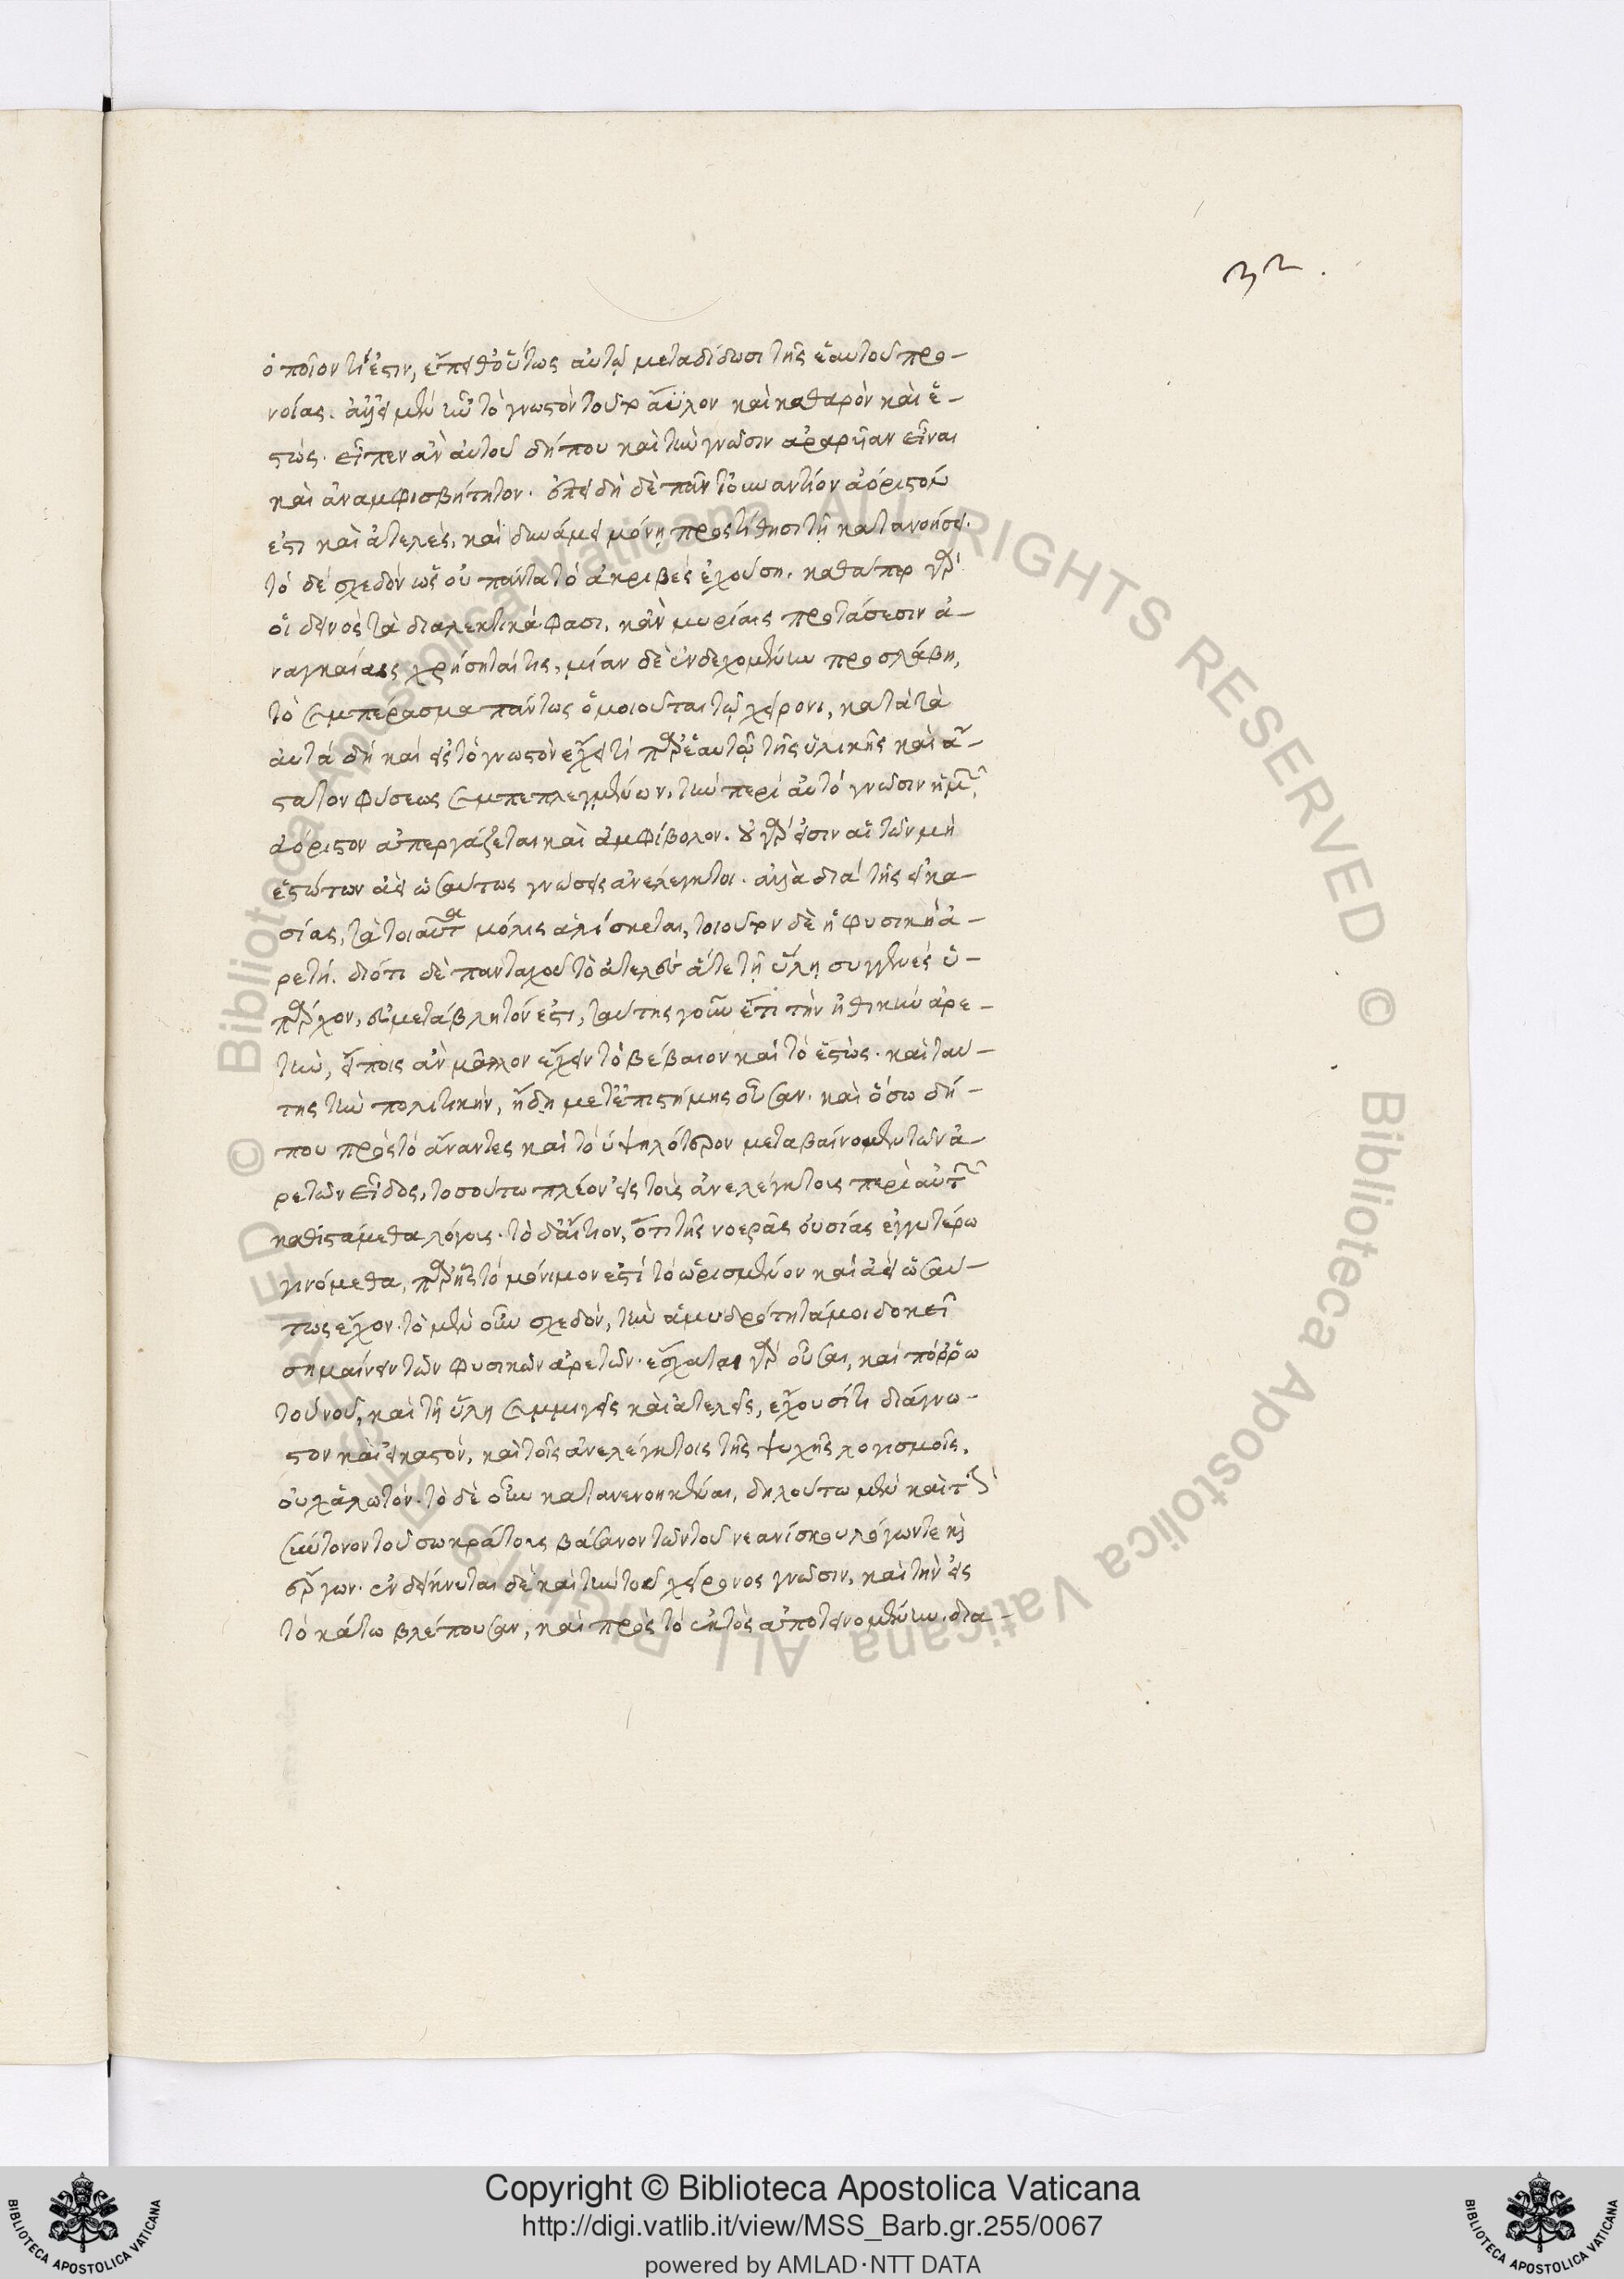 32.
ὁποῖον τί ἐστιν, ἔπειθ' οὕτως αὐτῷ μεταδίδωσι τῆς ἑαυτοῦ προ-
νοίας. ἀλλ' εἰ μὲν ἦν τὸ γνωστὸν τοῦτο ἄϋλον καὶ καθαρὸν καὶ ἑ-
στώς. εἶπεν ἂν αὐτοῦ δήπου καὶ τὴν γνῶσιν ἀραρυῖαν εἶναι
καὶ ἀναμφισβήτητον. ἐπειδὴ δὲ πᾶν τοὐναντίον ἀόριστόν
ἐστι καὶ ἀτελὲς, καὶ δυνάμει μόνῃ προστίθησι τῇ κατανοήσει.
τὸ δὲ σχεδὸν ὡς οὐ πάντα τὸ ἀκριβὲς ἐχούσῃ. καθάπερ γὰρ
οἱ δεινοὶ τὰ διαλεκτικά φασι, κἂν μυρίαις προτάσεσιν ἀ-
ναγκαίαις χρήσηταί τις, μίαν δὲ ἐνδεχομένην προσλάβῃ,
τὸ συμπέρασμα πάντως ὁμοιοῦται τῷ χείρονι, κατὰ τὰ
αὐτὰ δὴ καὶ εἰς τὸ γνωστὸν ἔχει τι παρ' ἑαυτῷ τῆς ὑλικῆς καὶ ἀ-
στάτου φύσεως συμπεπλεγμένον, τὴν περὶ αὐτὸ γνῶσιν ἡμῖν
ἀόριστον ἀπεργάζεται καὶ ἀμφίβολον. οὐ γάρ εἰσιν αἱ τῶν μὴ
ἑστώτων ἀεὶ ὡσαύτως γνώσεις ἀνελέγκτοι. ἀλλὰ διὰ τῆς εἰκα-
σίας, τὰ τοιαῦτα μόλις ἁλίσκεται, τοιοῦτον δὲ ἡ φυσικὴ ἀ-
ρετή. διότι δὲ πανταχοῦ τὸ ἀτελὲς ἅτε τῇ ὕλῃ συγγενὲς ὑ-
πάρχον, εὐμετάβλητόν ἐστι, ταύτης γοῦν ἔτι τὴν ἠθικὴν ἀρε-
τὴν, εἴποις ἂν μᾶλλον ἔχειν τὸ βέβαιον καὶ τὸ ἑστώς. καὶ ταύ-
της τὴν πολιτικὴν, ἤδη μετ' ἐπιστήμης οὖσαν. καὶ ὅσῳ δή-
που πρὸς τὸ ἄναντες καὶ τὸ ὑψηλότερον μεταβαίνομεν τῶν ἀ-
ρετῶν εἶδος, τοσούτῳ πλέον εἰς τοὺς ἀνελέγκτοις περὶ αὐτῶν
καθιστάμεθα λόγοις. τὸ δ' αἴτιον, ὅτι τῆς νοερᾶς οὐσίας ἐγγυτέρω
γινόμεθα, παρ' ἧς τὸ μόνιμον ἐστὶ τὸ ὡρισμένον καὶ ἀεὶ ὡσαύ-
τως ἔχον. τὸ μὲν οὖν σχεδὸν, τὴν ἀμυδρότητά μοι δοκεῖ
σημαίνειν τῶν φυσικῶν ἀρετῶν. ἔσχαται γὰρ οὖσαι, καὶ πόρρω
τοῦ νοῦ, καὶ τῇ ὕλῃ συμμιγεῖς καὶ ἀτελεῖς, ἔχουσί τι διάγνω-
στον καὶ εἰκαστὸν, καὶ τοῖς ἀνελέγκτοις τῆς ψυχῆς λογισμοῖς,
οὐχ ἁλωτόν. τὸ δὲ οὖν κατανενοηκέναι, δηλούτω μὲν καὶ τὴν
σύντονον τοῦ σωκράτους βάσανον τῶν τοῦ νεανίσκου λόγων τε καὶ
ἔργων. ἐνδείκνυται δὲ καὶ τὴν τοῦ χείρονος γνῶσιν, καὶ τὴν εἰς
τὸ κάτω βλέπουσαν, καὶ πρὸς τὸ ἐκτὸς ἀποτεινομένην. δια-
Copyright © Biblioteca Apostolica Vaticana
http://digi.vatlib.it/view/MSS_Barb.gr.255/0067
powered by AMLAD·NTT DATA